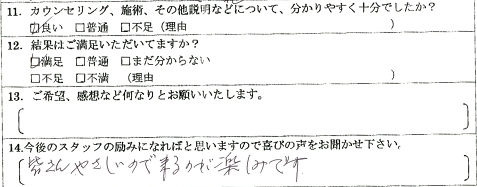 11. カウンセリング、施術、その他説明などについて、分かりやすく十分でしたか？
□良い □普通 □不足（理由 ）
12. 結果はご満足いただいてますか？
□満足 □普通 □まだ分からない
□不足 □不満 （理由 ）
13. ご希望、感想など何なりとお願いいたします。
14.今後のスタッフの励みになればと思いますので喜びの声をお聞かせ下さい。
皆さんやさしいので来るのが楽しみです